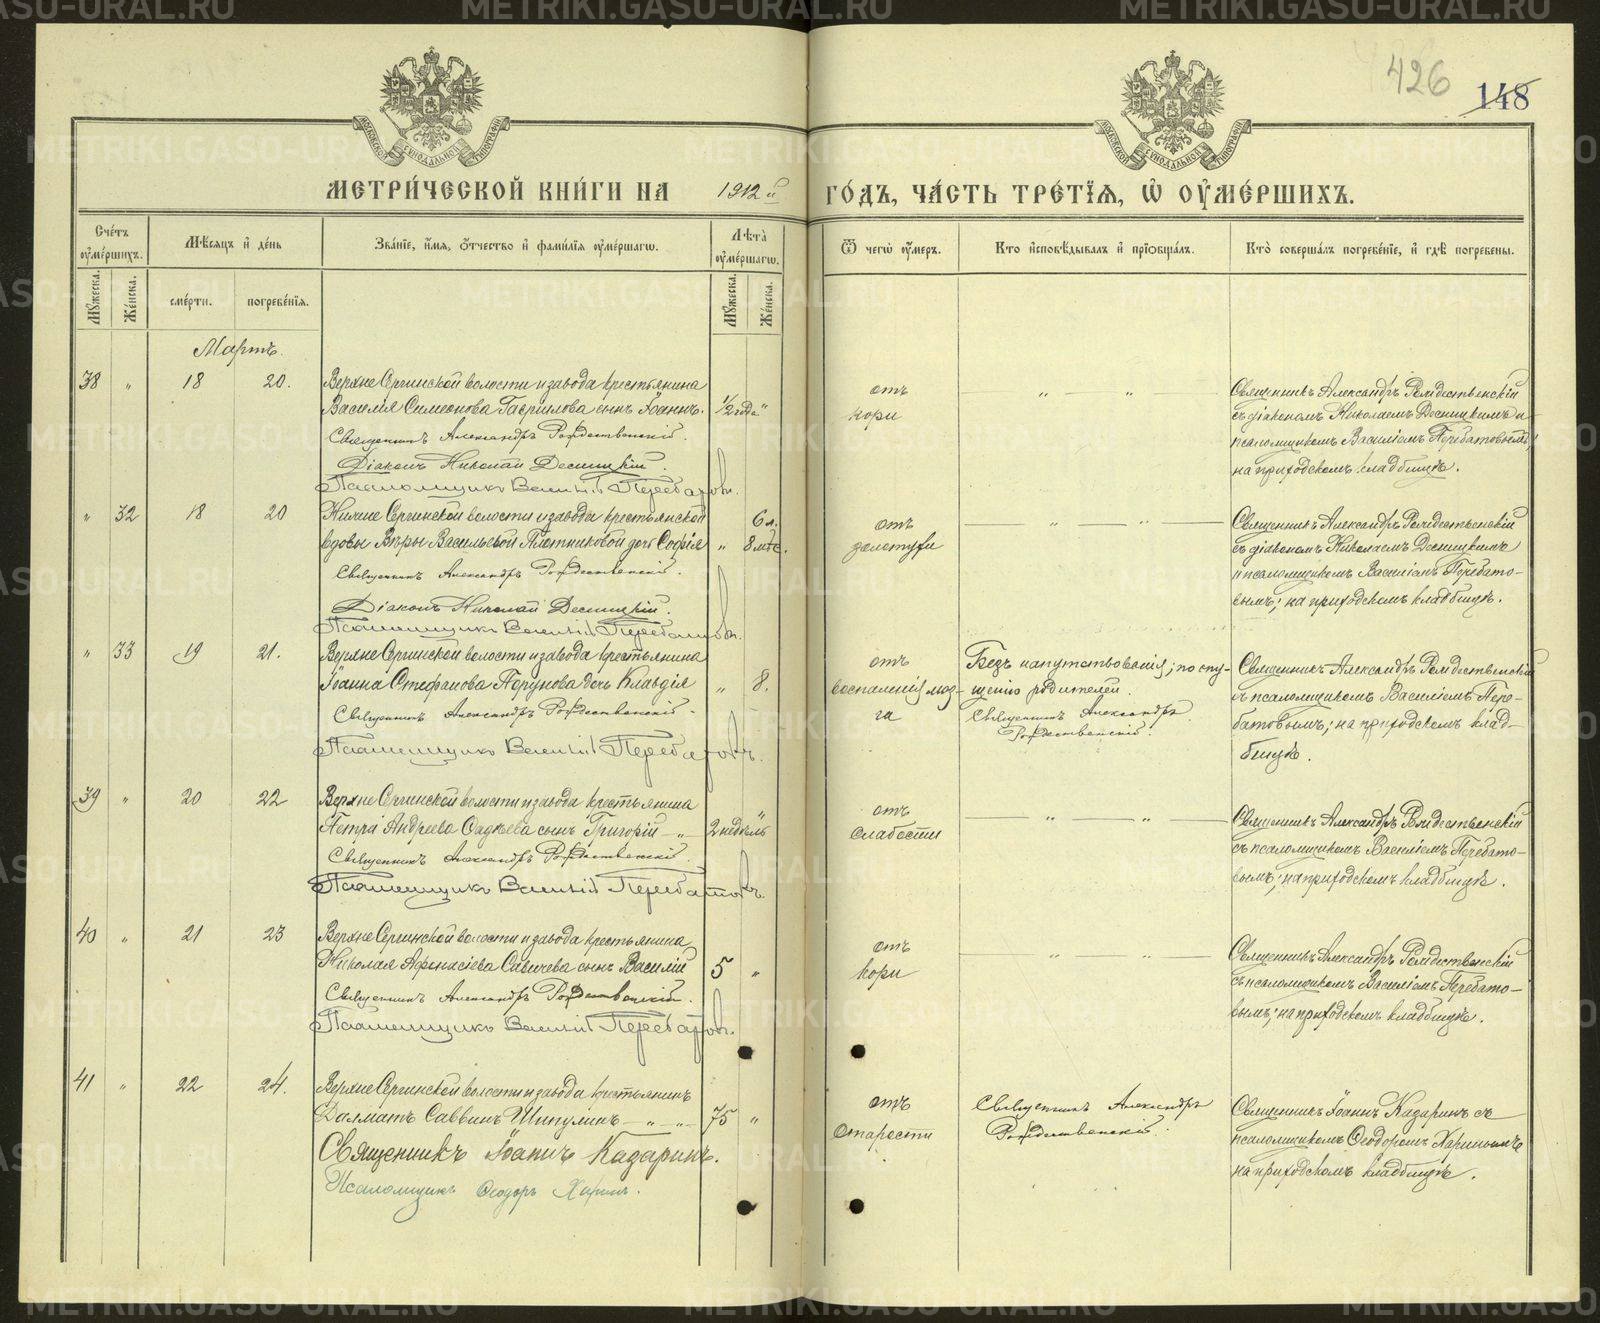 426
148
МЕТРИ́ЧЕСКОЙ КНИ́ГИ НА 1912 й ГО́ДЪ, ЧА́СТЬ ТРЕ́ТІѦ, Ѡ҆ ОУ҆МЕ́РШИХЪ.
Сче́тъ оу҆ме́ршихъ.
Мꙋ́жеска.
Же́нска.
Мѣ́сяцъ и҆ де́нь
сме́рти.
погребе́нїя.
Зва́нїе, и҆́мя, ѻ҆́тчество и҆ фами́лїя оу҆ме́ршагѡ.
Лѣ́та̀ оу҆ме́ршагѡ.
Мꙋ́жеска.
Же́нска.
Ѿ чегѡ̀ оу҆́меръ.
Кто̀ и҆сповѣ́дывалъ и҆ прїѡбща́лъ.
Кто̀ соверша́лъ погребе́нїе, и҆ гдѣ̀ погребены.
Мартъ.
38 " 18 20.
Верхне Сергинской волости и завода крестьянина
Василія Симеонова Гаврилова сынъ Іоаннъ. 1/2 года "
Священникъ Александръ Рождественскій.
Діаконъ Николай Десницкій.
Псаломщикъ Василій Перебатовъ.
отъ
кори
Священникъ Александръ Рождественскій
съ діакономъ Николаемъ Десницкимъ и
псаломщикомъ Василіемъ Перебатовымъ,
на приходскомъ кладбищѣ.
" 32 18 20
Нижне Сергинской волости и завода крестьянской 6 л.
вдовы Вѣры Васильевой Плотниковой дочь Софія " 8 мѣс.
Священникъ Александръ Рождественскій.
Діаконъ Николай Десницкій.
Псаломщикъ Василій Перебатовъ.
отъ
золотухи
Священникъ Александръ Рождественскій
съ діакономъ Николаемъ Десницкимъ
и псаломщикомъ Василіемъ Перебато-
вымъ; на приходскомъ кладбищѣ.
" 33 19 21.
Верхне Сергинской волости и завода крестьянина
Іоанна Стефанова дочь Клавдія " 8.
Священникъ Александръ Рождественскій.
Псаломщикъ Василій Перебатовъ.
отъ
воспаленія моз-
га
Безъ напутствованія; по опу-
щенію родителей.
Священникъ Александръ
Рождественскій.
Священникъ Александръ Рождественскій
съ псаломщикомъ Василіемъ Пере-
батовымъ; на приходскомъ клад-
бищѣ.
39 " 20 22
Верхне Сергинской волости и завода крестьянина
Петра Андреева сынъ Григорій 2 недѣль "
Священникъ Александръ Рождественскій.
Псаломщикъ Василій Перебатовъ.
отъ
слабости
Священникъ Александръ Рождественскій
съ псаломщикомъ Василіемъ Перебато-
вымъ; на приходскомъ кладбищѣ.
40 " 21 23
Верхне Сергинской волости и завода крестьянина
Николая Афанасіева Савичева сынъ Василій 5 "
Священникъ Александръ Рождественскій.
Псаломщикъ Василій Перебатовъ.
отъ
кори
Священникъ Александръ Рождественскій
съ псаломщикомъ Василіемъ Перебато-
вымъ; на приходскомъ кладбищѣ.
41 " 22 24.
Верхне Сергинской волости и завода крестьянинъ
Далматъ Саввинъ Шипулинъ 75 "
Священникъ Іоаннъ Кадаринъ.
Псаломщикъ Ѳеодоръ Харинъ.
отъ
старости
Священникъ Александръ
Рождественскій.
Священникъ Іоаннъ Кадаринъ съ
псаломщикомъ Ѳеодоромъ Харинымъ
на приходскомъ кладбищѣ.
METRIKI.GASO-URAL.RU